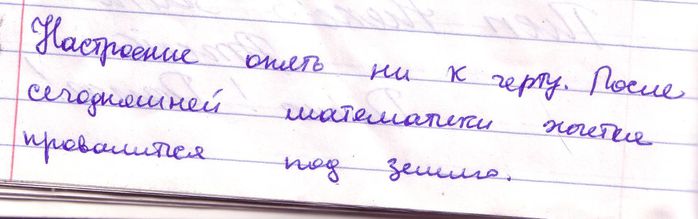 Настроение опять ни к черту. После
сегодняшней математики хочется
провалится под землю.